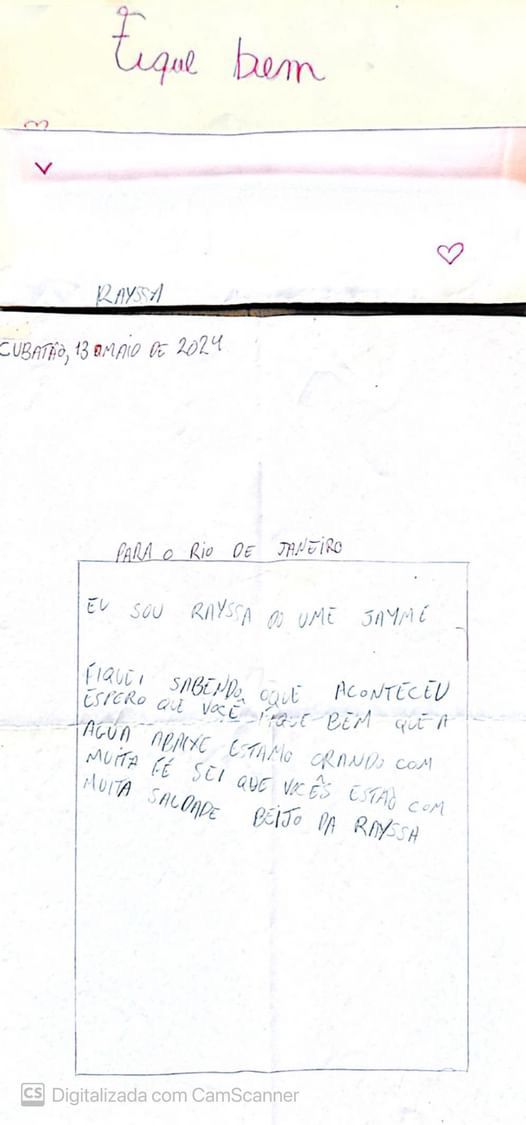 Fique bem
RAYSSA
CUBATÃO, 13 DMAIO DE 2024
PARA O RIO DE JANEIRO
EU SOU RAYSSA DO UME JAYME
FIQUEI SABENDO OQUE ACONTECEU
ESPERO QUE VOCÊ FIQUE BEM QUE A
AGUA ABAIXE ESTAMO ORANDO COM
MUITA FÉ SEI QUE VOCÊS ESTAO COM
MUITA SAUDADE BEIJO DA RAYSSA
CS Digitalizada com CamScanner